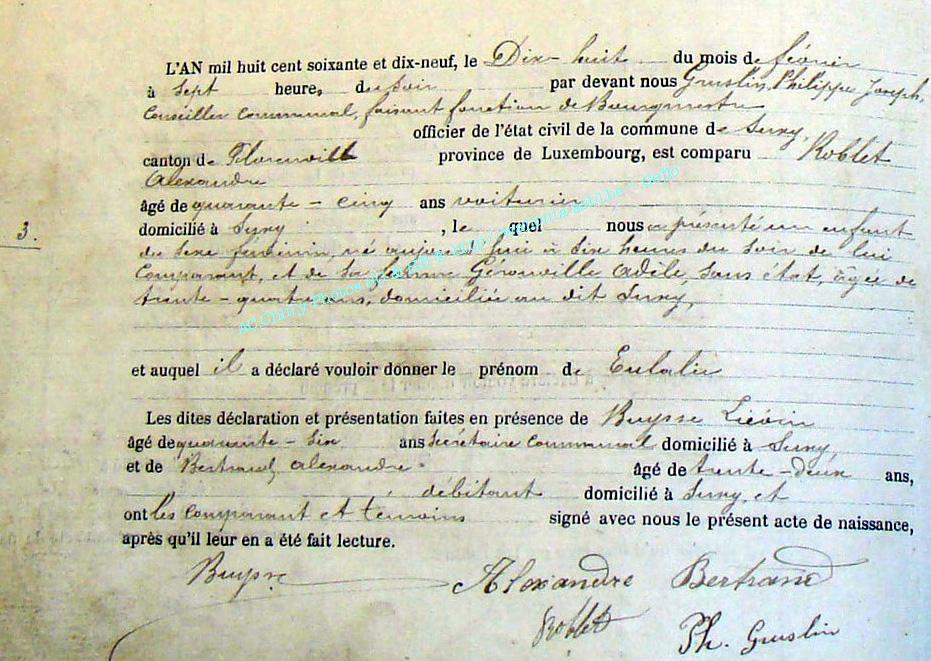 L'AN mil huit cent soixante et dix-neuf, le Dix-huit du mois de février
à sept heure, du soir par devant nous Gruslin, Philippe Joseph,
Conseiller Communal, faisant fonction de Bourgmestre
officier de l'état civil de la commune de Suxy,
canton de Florenville province de Luxembourg, est comparu Roblet
Alexandre
âgé de quarante-cinq ans voiturier
domicilié à Suxy, le quel nous a présenté un enfant
3.
du sexe féminin, né aujourd'hui à six heures du soir de lui
Comparant, et de sa femme Gérouville Adèle, sans état, âgée de
trente-quatre ans, domiciliée au dit Suxy,
et auquel il a déclaré vouloir donner le prénom de Eulalie
Les dites déclaration et présentation faites en présence de Buysse Liévin
âgé de quarante-six ans Secrétaire Communal domicilié à Suxy,
et de Bertrand Alexandre âgé de trente-deux ans,
débitant domicilié à Suxy, et
ont les comparant et témoins signé avec nous le présent acte de naissance,
après qu'il leur en a été fait lecture.
Buysse Alexandre Bertrand
Roblet Ph. Gruslin